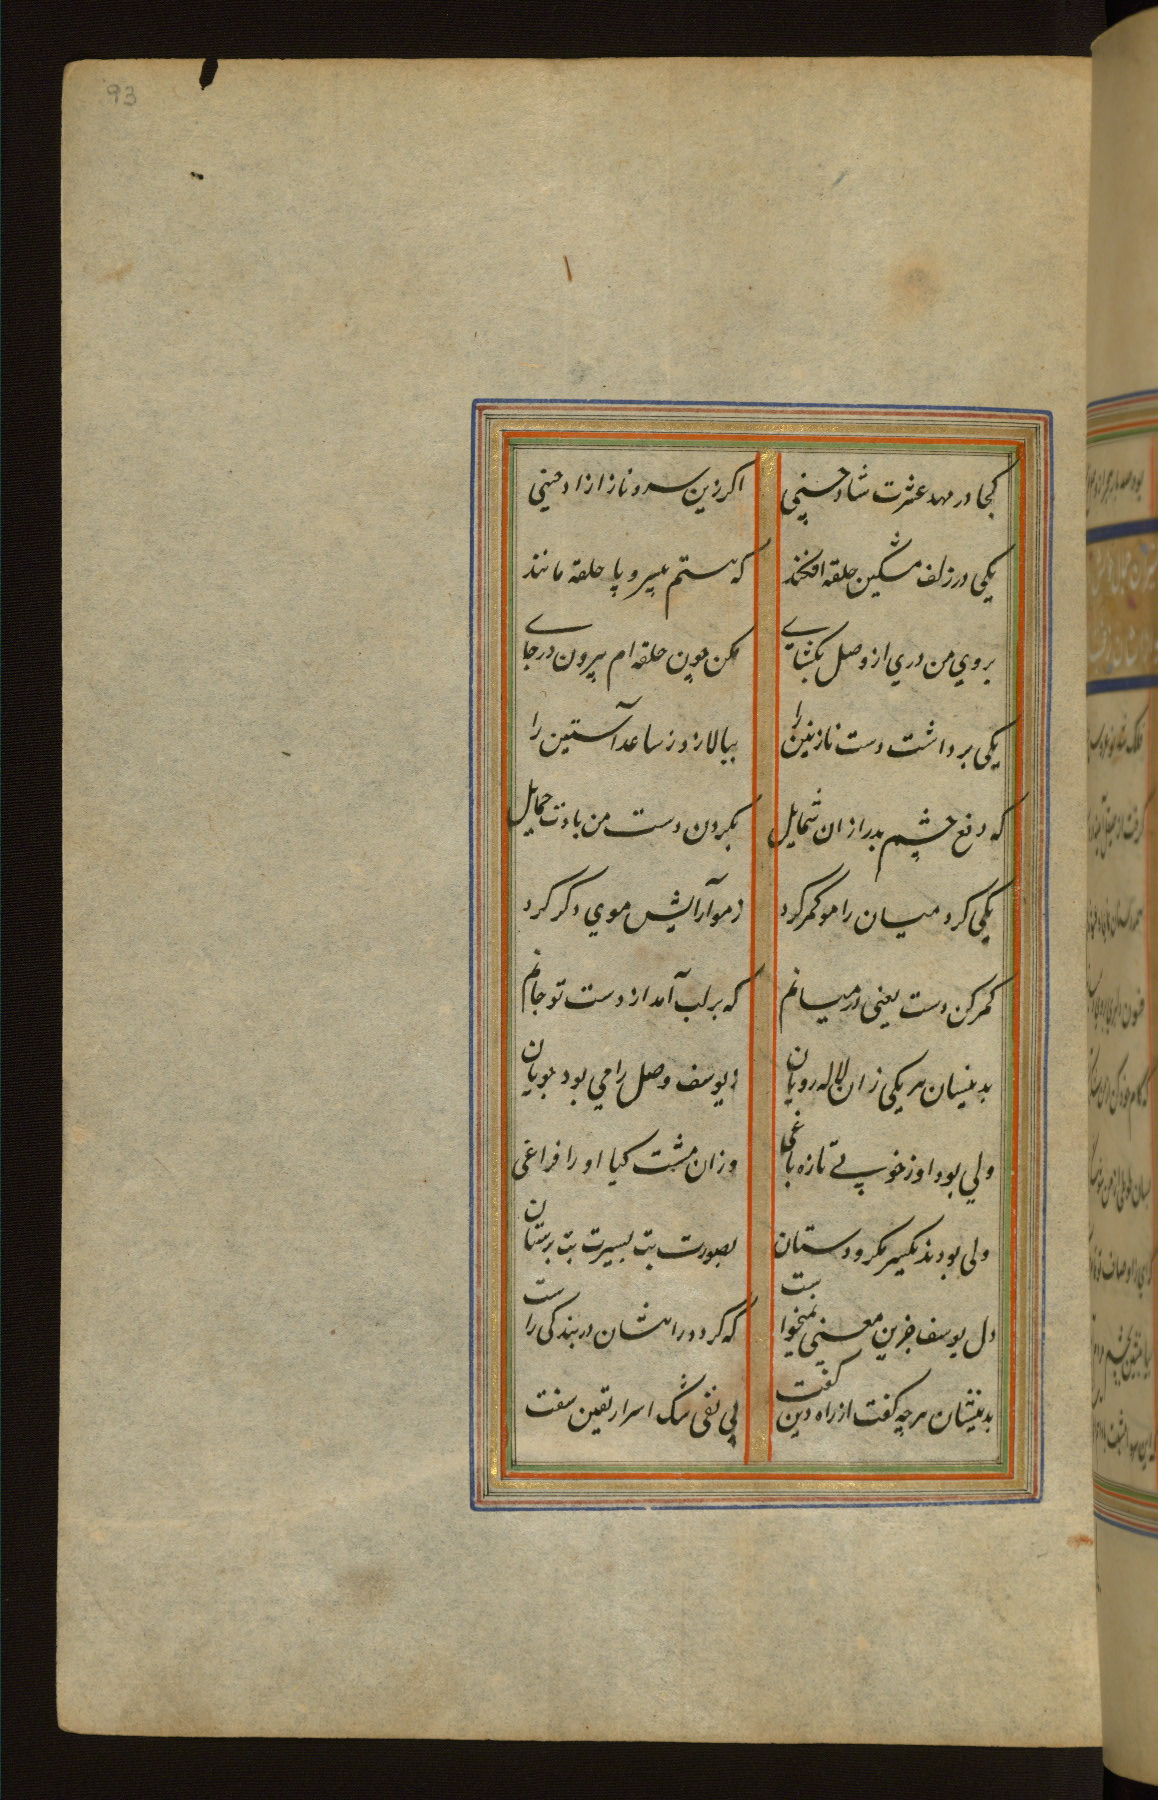 93
کجا در مهد عشرت شاد خسپی
اکر زین سرو ناز ازاد خسپی
یکی در زلف مشکین حلقه افکند
که هستم بیسر و پا حلقه مانند
بروي من دري از وصل بکشاے
مکن چون حلقه ام بیرون در جاے
یکی برداشت دست نازنین را
ببالا زد ز ساعد آستین را
که دفع چشم بد را زان شمایل
بکردن دست من بادت حمایل
یکی کرد میان را مو کمر کرد
ز مو آرایش موي دکر کرد
کمر کن دست یعنی در میانم
که بر لب آمد از دست تو جانم
بدینسان هر یکی زان لاله رویان
ز یوسف وصل را می بود جویان
ولی بود او ز خوبے تازه باغی
وزان مشت کیا او را فراغی
ولی بودند یکسر مکر و دستان
بصورت بت بسیرت بت پرستان
دل یوسف جزین معنی نمیخواست
که کردد راهشان در بندکی راست
بدینشان هرچه کفت از راه دین کفت
پی نفی شک اسرار یقین سفت